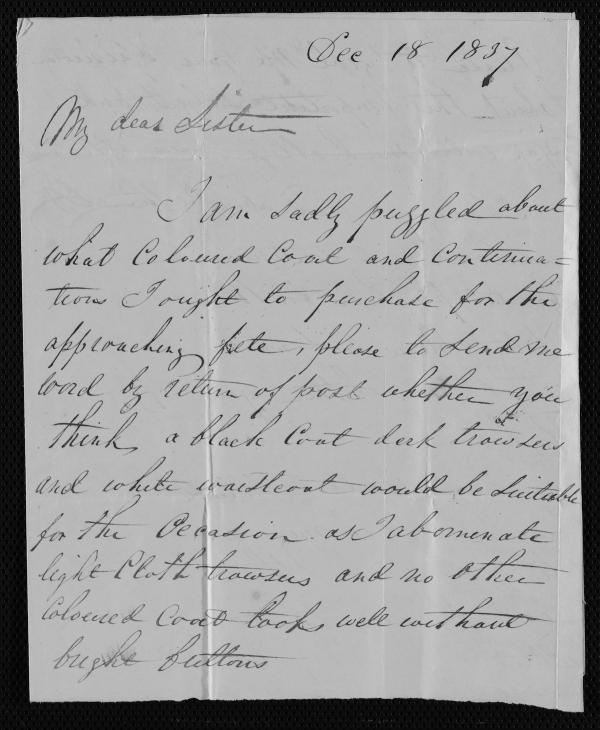 Dec 18 1837
My dear Sister
I am sadly puzzled about
what Coloured Coat and Continua=
tions I ought to purchase for the
approaching fete, please to send me
word by return of post whether you
think a black Coat dark trowsers
and white waistcoat would be suitable
for the Occasion as I abominate
light Cloth trowsers and no other
Coloured Coat looks well without
bright buttons